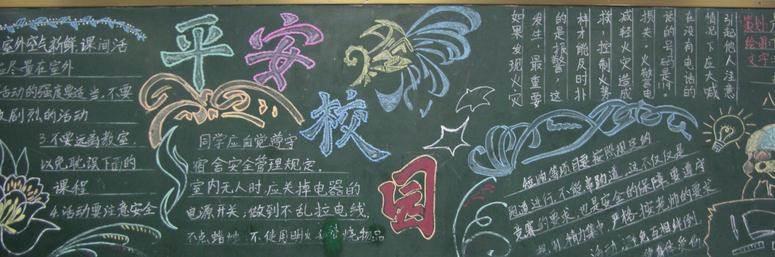 室外空气新鲜,课间活
尽量在室外
活动的强度要适当,不要
剧烈的活动
3.不要远离教室,
以免耽误下面的
课程
4.活动要注意安全
平安校园
同学应自觉遵守
宿舍安全管理规定,
室内无人时应关掉电器的
电源开关;做到不乱拉电线,
不点蜡烛,不使用明火 燃物品
如果发现火灾
发生,最重要
的是报警,这
样才能及时扑
救,控制火势
减轻火灾造成
损失。火警电
话的号码是119
在没有电话的
情况下应大喊
引起他人注意
短跑等项目要按照规定的
跑道进行,不能串跑道。这不仅仅是
竞赛的要求,也是安全的保障